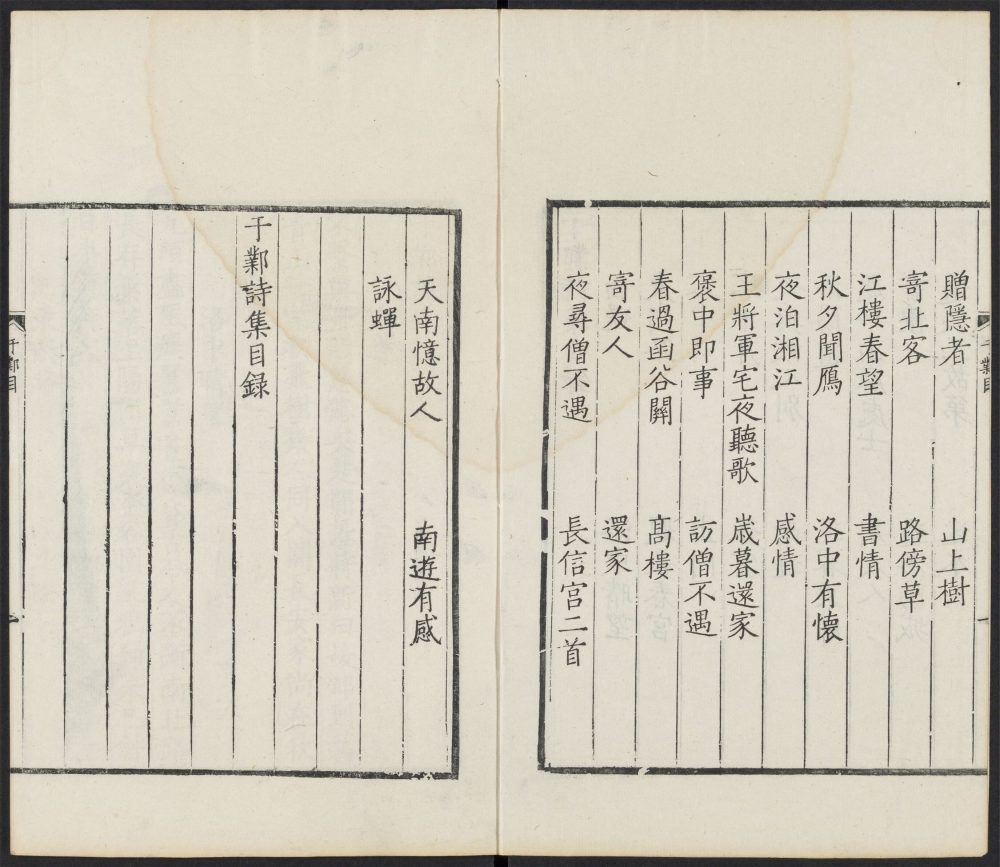 贈隱者 山上樹
寄北客 路傍草
江樓春望 書情
秋夕聞鴈 洛中有懷
夜泊湘江 感情
王將軍宅夜聽歌 嵗暮還家
褒中即事 訪僧不遇
春過函谷關 髙樓
寄友人 還家
夜尋僧不遇 長信宫二首
天南憶故人 南遊有感
詠蟬
于鄴詩集目録
于鄴目